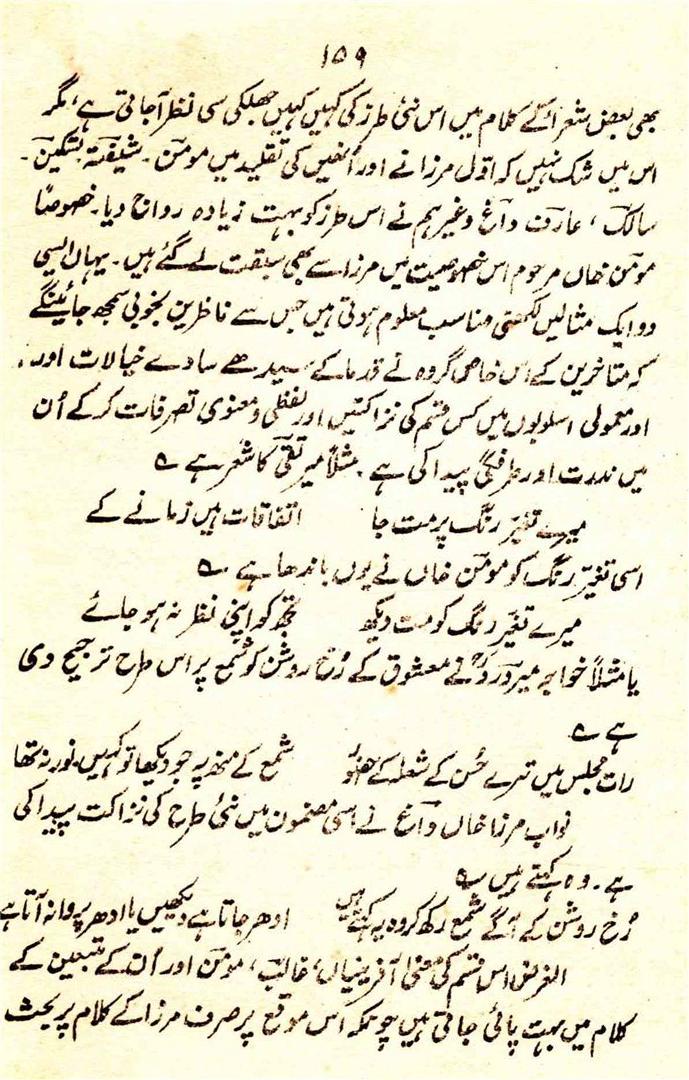 ۱۵۹
بھی بعض شعراء کے کلام میں اس نئی طرز کی کہیں کہیں جھلکی سی نظر آجاتی ہے، مگر
اس میں شک نہیں کہ اوّل مرزا نے اور اُنھیں کی تقلید میں مومنؔ۔ شیفتہؔ تسکینؔ۔
سالکؔ، عارفؔ داغؔ وغیرہم نے اس طرز کو بہت زیادہ رواج دیا۔ خصوصاً
مومنؔ خاں مرحوم اس خصوصیت میں مرزا سے بھی سبقت لے گئے ہیں۔ یہاں ایسی
دو ایک مثالیں لکھنی مناسب معلوم ہوتی ہیں جس سے ناظرین بخوبی سمجھ جائینگے
کہ متاخرین کے اس خاص گروہ نے قدما کے سیدھے سادے خیالات اور
اور معمولی اسلوبوں میں کس قسم کی نزاکتیں اور لفظی و معنوی تصرفات کرکے اُن
میں ندرت اور طرفگی پیدا کی ہے۔ مثلاً میر تقیؔ کا شعر ہے ؎
میرے تغیّر رنگ پر مت جا اتفاقات ہیں زمانے کے
اسی تغیّر رنگ کو مومنؔ خاں نے یوں باندھا ہے ؎
میرے تغیّر رنگ کو مت دیکھ تجھ کو اپنی نظر نہ ہو جائے
یا مثلاً خواجہ میر دردؔ نے معشوق کے رُخِ روشن کو شمع پر اس طرح ترجیح دی
ہے ؎
رات مجلس میں ترے حُسن کے شعلہ کے حضور شمع کے منھ پہ جو دیکھا تو کہیں نور نہ تھا
نواب مرزا خاں داغؔ نے اسی مضمون میں نئی طرح کی نزاکت پیدا کی
ہے۔ وہ کہتے ہیں ؎
رُخِ روشن کے آگے شمع رکھ کر وہ یہ کہتے ہیں ادھر جاتا ہے دیکھیں یا ادھر پروانہ آتا ہے
الغرض اس قسم کی معنی آفرینیاں، غالبؔ، مومنؔ اور اُن کے متبعین کے
کلام میں بہت پائی جاتی ہیں چونکہ اس موقع پر صرف مرزا کے کلام پر بحث